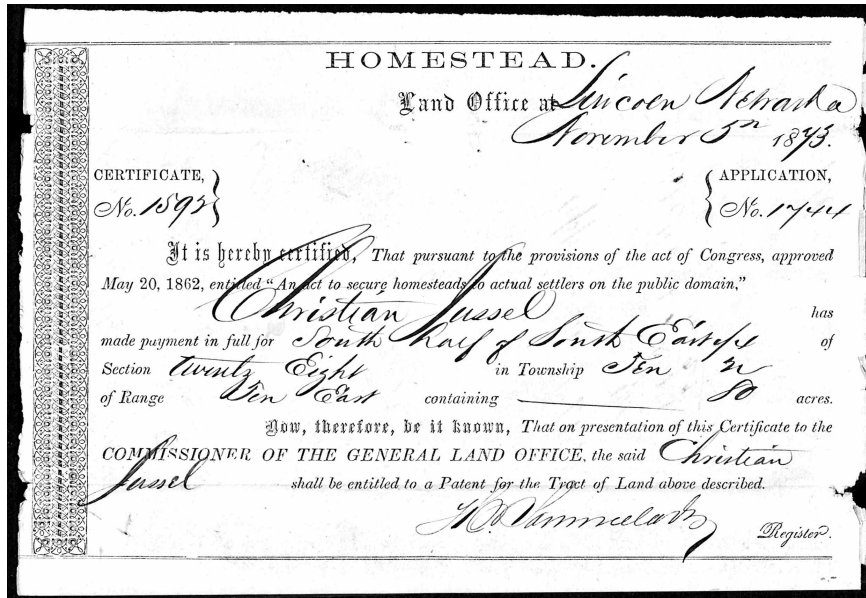 HOMESTEAD.
Land Office at Lincoln Nebraska
November 5th 1873.
CERTIFICATE,
No. 1592
APPLICATION,
No. 1744
It is hereby certified, That pursuant to the provisions of the act of Congress, approved
May 20, 1862, entitled "An act to secure homesteads to actual settlers on the public domain,"
Christian Jussel has
made payment in full for South half of South East of
Section twenty Eight in Township Ten N
of Range Ten East containing 80 acres.
Now, therefore, be it known, That on presentation of this Certificate to the
COMMISSIONER OF THE GENERAL LAND OFFICE, the said Christian
Jussel shall be entitled to a Patent for the Tract of Land above described.
Register.